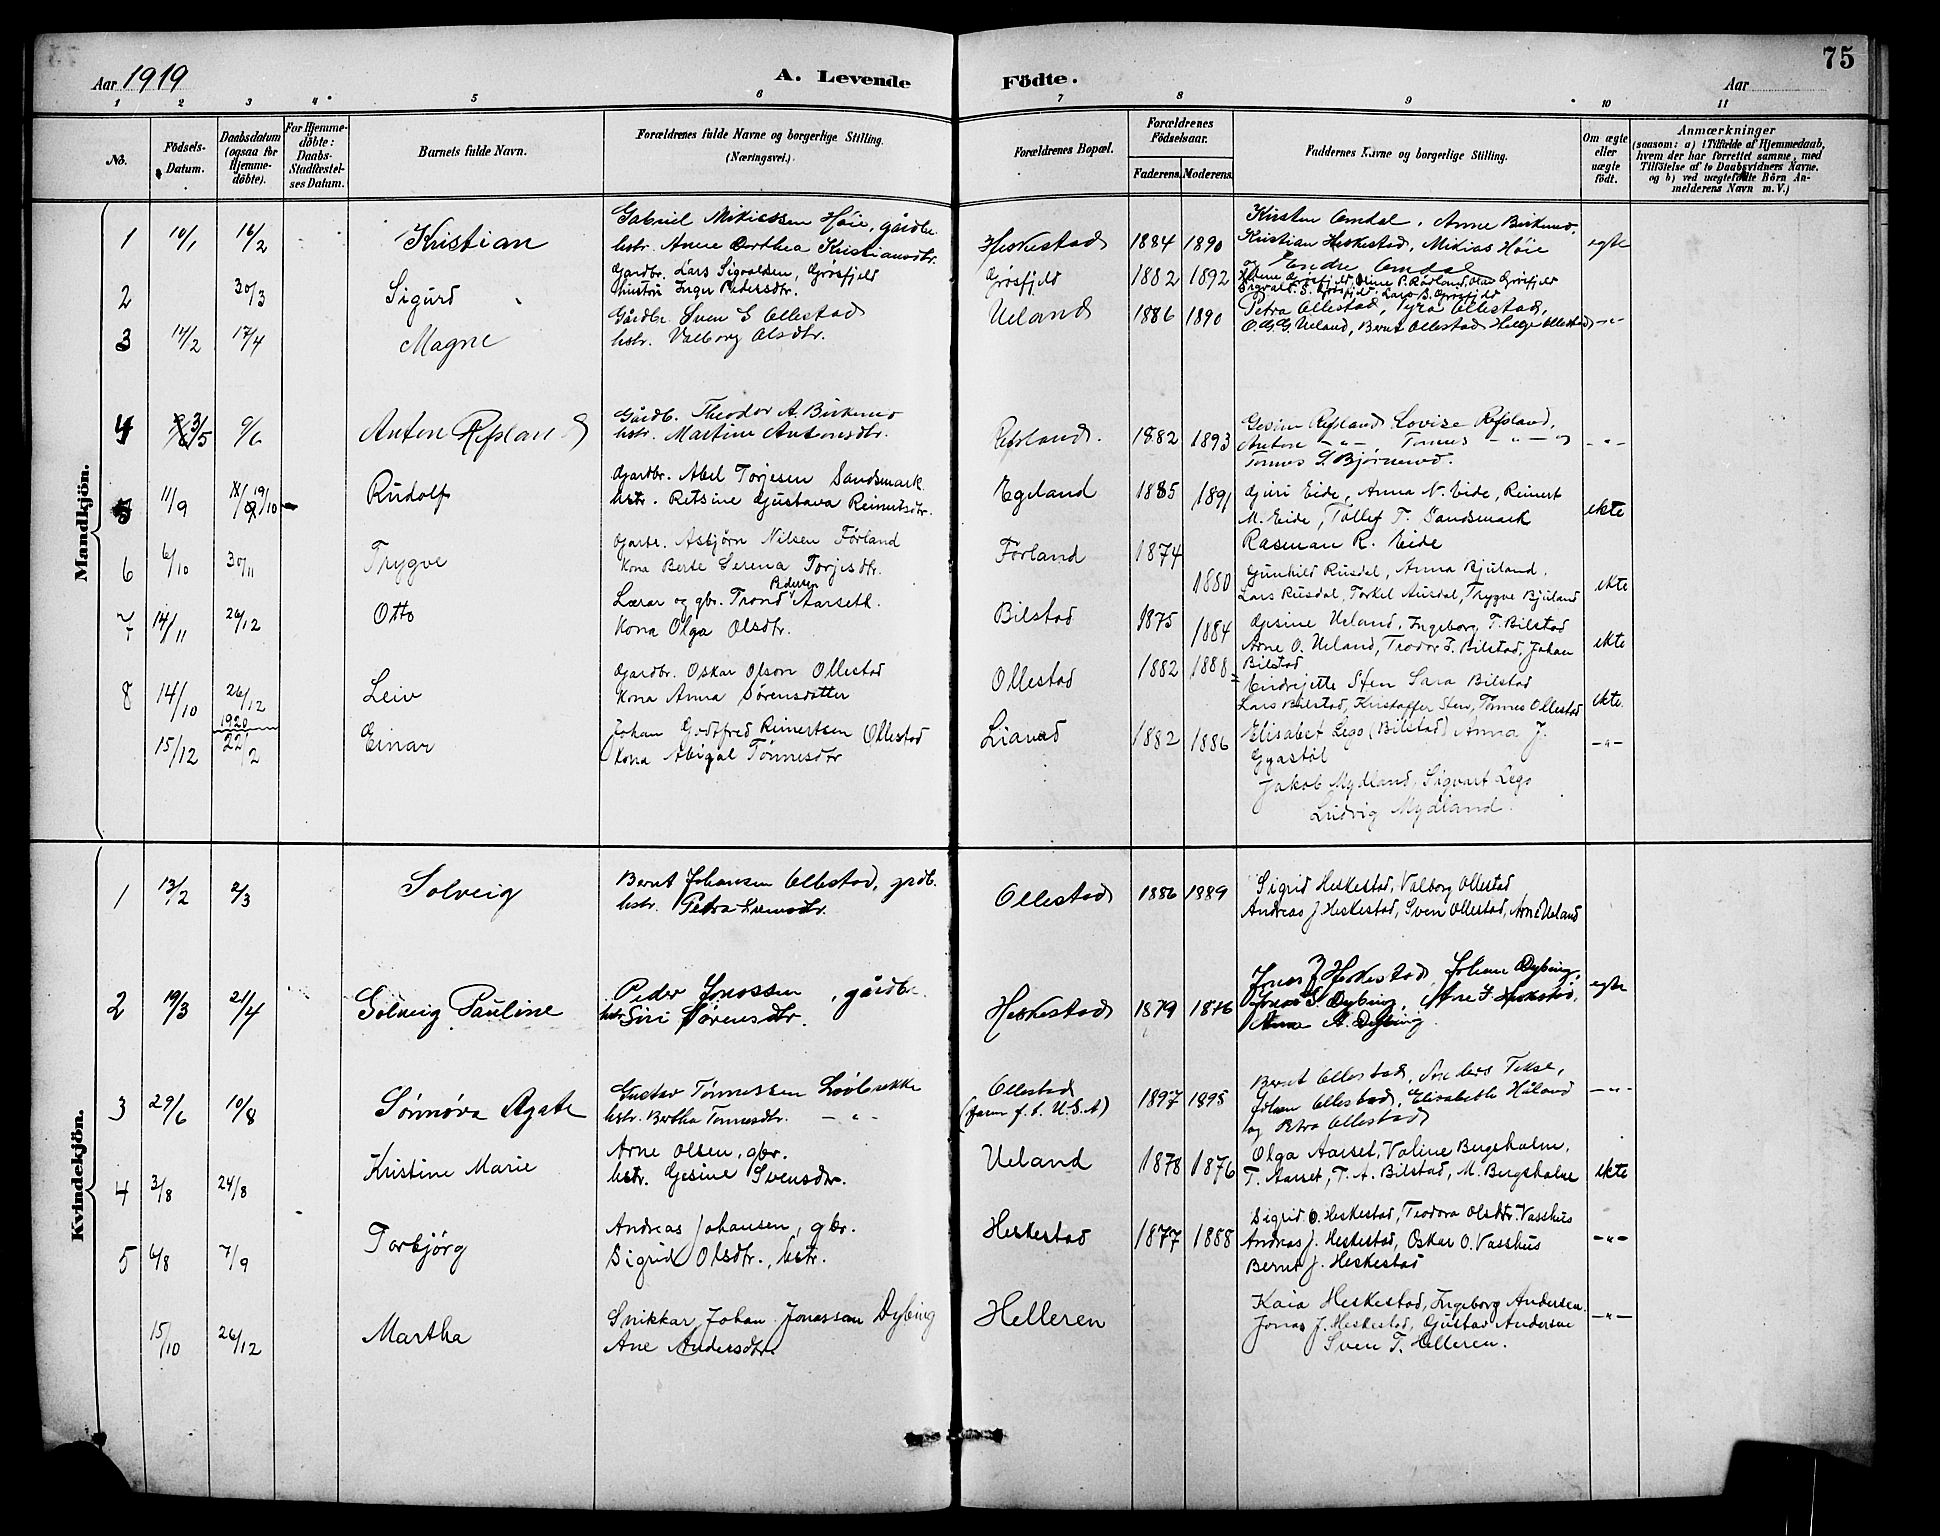 75
Aar 1919
A. Levende Födte.
Aar
1 2 3 4 5 6 7 8 9 10 11
No.
Födsels-Datum.
Daabsdatum (ogsaa for Hjemme-döbte).
For Hjemme-döbte: Daabs-Stadfæstel-ses Datum.
Barnets fulde Navn.
Forældrenes fulde Navne og borgerlige Stilling. (Næringsvei.)
Forældrenes Bopæl.
Forældrenes Födselsaar.
Faderens. Moderens.
Faddernes Navne og borgerlige Stilling.
Om ægte eller uægte födt.
Anmærkninger
(saasom: a) i Tilfælde af Hjemmedaab,
hvem der har forrettet samme, med
Tilföielse af to Daabsvidners Navne.
og b) ved uægtefödte Börn An-
melderens Navn m. V.)
Mandkjön.
1 10/1 16/2 Kristian
Gabriel Mikiassen Høie, gårdbr.
hstr. Anne Dorthea Kristiansdtr.
Heskestad 1884 1890
Kirsten Omdal, Anne Birkemo,
Kristian Heskestad, Mikias Høie
og Endre Omdal
egte
2 30/3 Sigurd
Gardbr. Lars Sigvaldsen, Grøsfjeld
Hustru Inger Pedersdtr.
Grøsfjeld 1882 1892
3 14/2 17/4 Magne
Gårdbr. Sven G Ollestad
hstr. Valborg Olsdtr.
Ueland 1886 1890
Petra Ollestad, Tyra Ollestad,
O. G. G. Ueland, Bernt Ollestad Helge Ollestad
-"-
4 3/5 9/6 Anton Refsland
Gårdb. Theodor A. Birkemo
hstr. Martine Antonsdtr.
Refsland. 1882 1893
Gesine Refsland, Lovise Refsland,
Anton -"-, Tonnes -"- og
Tonnes S. Bjørnemo.
-"-
5 11/9 19/10 Rudolf
Gardbr. Abel Torjesen Sandsmark
hstr. Retsine Gustava Reinertsdtr.
Egeland 1885 1891
Guri Eide, Anna N. Eide, Reinert
M. Eide, Tollef T. Sandsmark
Rasman R. Eide
ekte
6 6/10 30/11 Trygve
Gardbr. Asbjörn Nilsen Förland
Kona Berte Serena Torjesdtr.
Förland 1874 1880
Gunhild Rusdal, Anna Bjuland.
Lars Rusdal, Torkel Ausdal, Trygve Bjuland
ekte
7 14/11 26/12 Otto
Lærar og gbr. Trond Pedersen Aarseth.
Kona Olga Olsdtr.
Bilstad 1875 1884
Gesine Ueland, Ingeborg T. Bilstad
Arne O. Ueland, Teodor T. Bilstad, Johan
Bilstad
ekte
8 14/10 26/12 Leiv
Gardbr. Oskar Olson Ollestad
Kona Anna Sörensdotter
Ollestad 1882 1888
Endrejette Sten Sara Bilstad
Lars Bilstad, Kristoffer Sten, Tönnes Ollestad
ekte.
15/12 1920 22/2 Einar
Johan Godtfred Reinertsen Ollestad
Kona Abigal Tönnesdtr
Liavad 1882 1886
Elisabet Lego (Bilstad) Anna J.
Gyastöl
Jakob Mydland, Sigvart Lego
Ludvig Mydland.
-"-
Kvindekjön.
1 13/2 2/3 Solveig
Bernt Johansen Ollestad, grdb.
hstr. Petra Svensdtr.
Ollestad 1886 1889
Sigrid Heskestad, Valborg Ollestad
Andreas J Heskestad, Sven Ollestad, Arne Ueland
2 19/3 21/4 Solveig Pauline
Peder Jonassen, gårdbr.
hstr Siri Sörensdtr.
Heskestad 1879 1876
Jonas J Heskestad, Johan Dybing,
Jonas S. Dybing, Ane J. Heskestad,
Anna A. Dybing.
egte
3 29/6 10/8 Sónnóva Agate
Gustav Tönnessen Lövbrekke
hstr. Bertha Tonnesdtr. -"-
Ollestad
(farm f. t. U.S.A) 1897 1895
Bernt Ollestad, Anders Tekse,
Johan Ollestad, Elisabeth Håland
og Petra Ollestad
-"-
4 3/8 24/8 Kristine Marie
Arne Olsen, gbr.
hstr. Gesine Svensdtr.
Ueland 1878 1876
Olga Aarset, Valine Bergsholm,
T. Aarset, T. A. Bilstad, M. Bergsholm
ekte
5 6/8 7/9 Torbjörg
Andreas Johansen, gbr.
Sigrid Olsdtr., hstr.
Heskestad 1877 1888
Sigrid O. Heskestad, Teodora Olsdtr. Vasshus
Andreas J. Heskestad, Oskar O. Vasshus
Bernt J. Heskestad
-"-
15/10 26/12 Martha
Snikkar Johan Jonassen Dybing
Ane Andersdtr.
Helleren
Kaia Heskestad, Ingeborg Andersen.
Jonas J. Heskestad, Gustav Andersen
Sven T. Helleren.
-"-